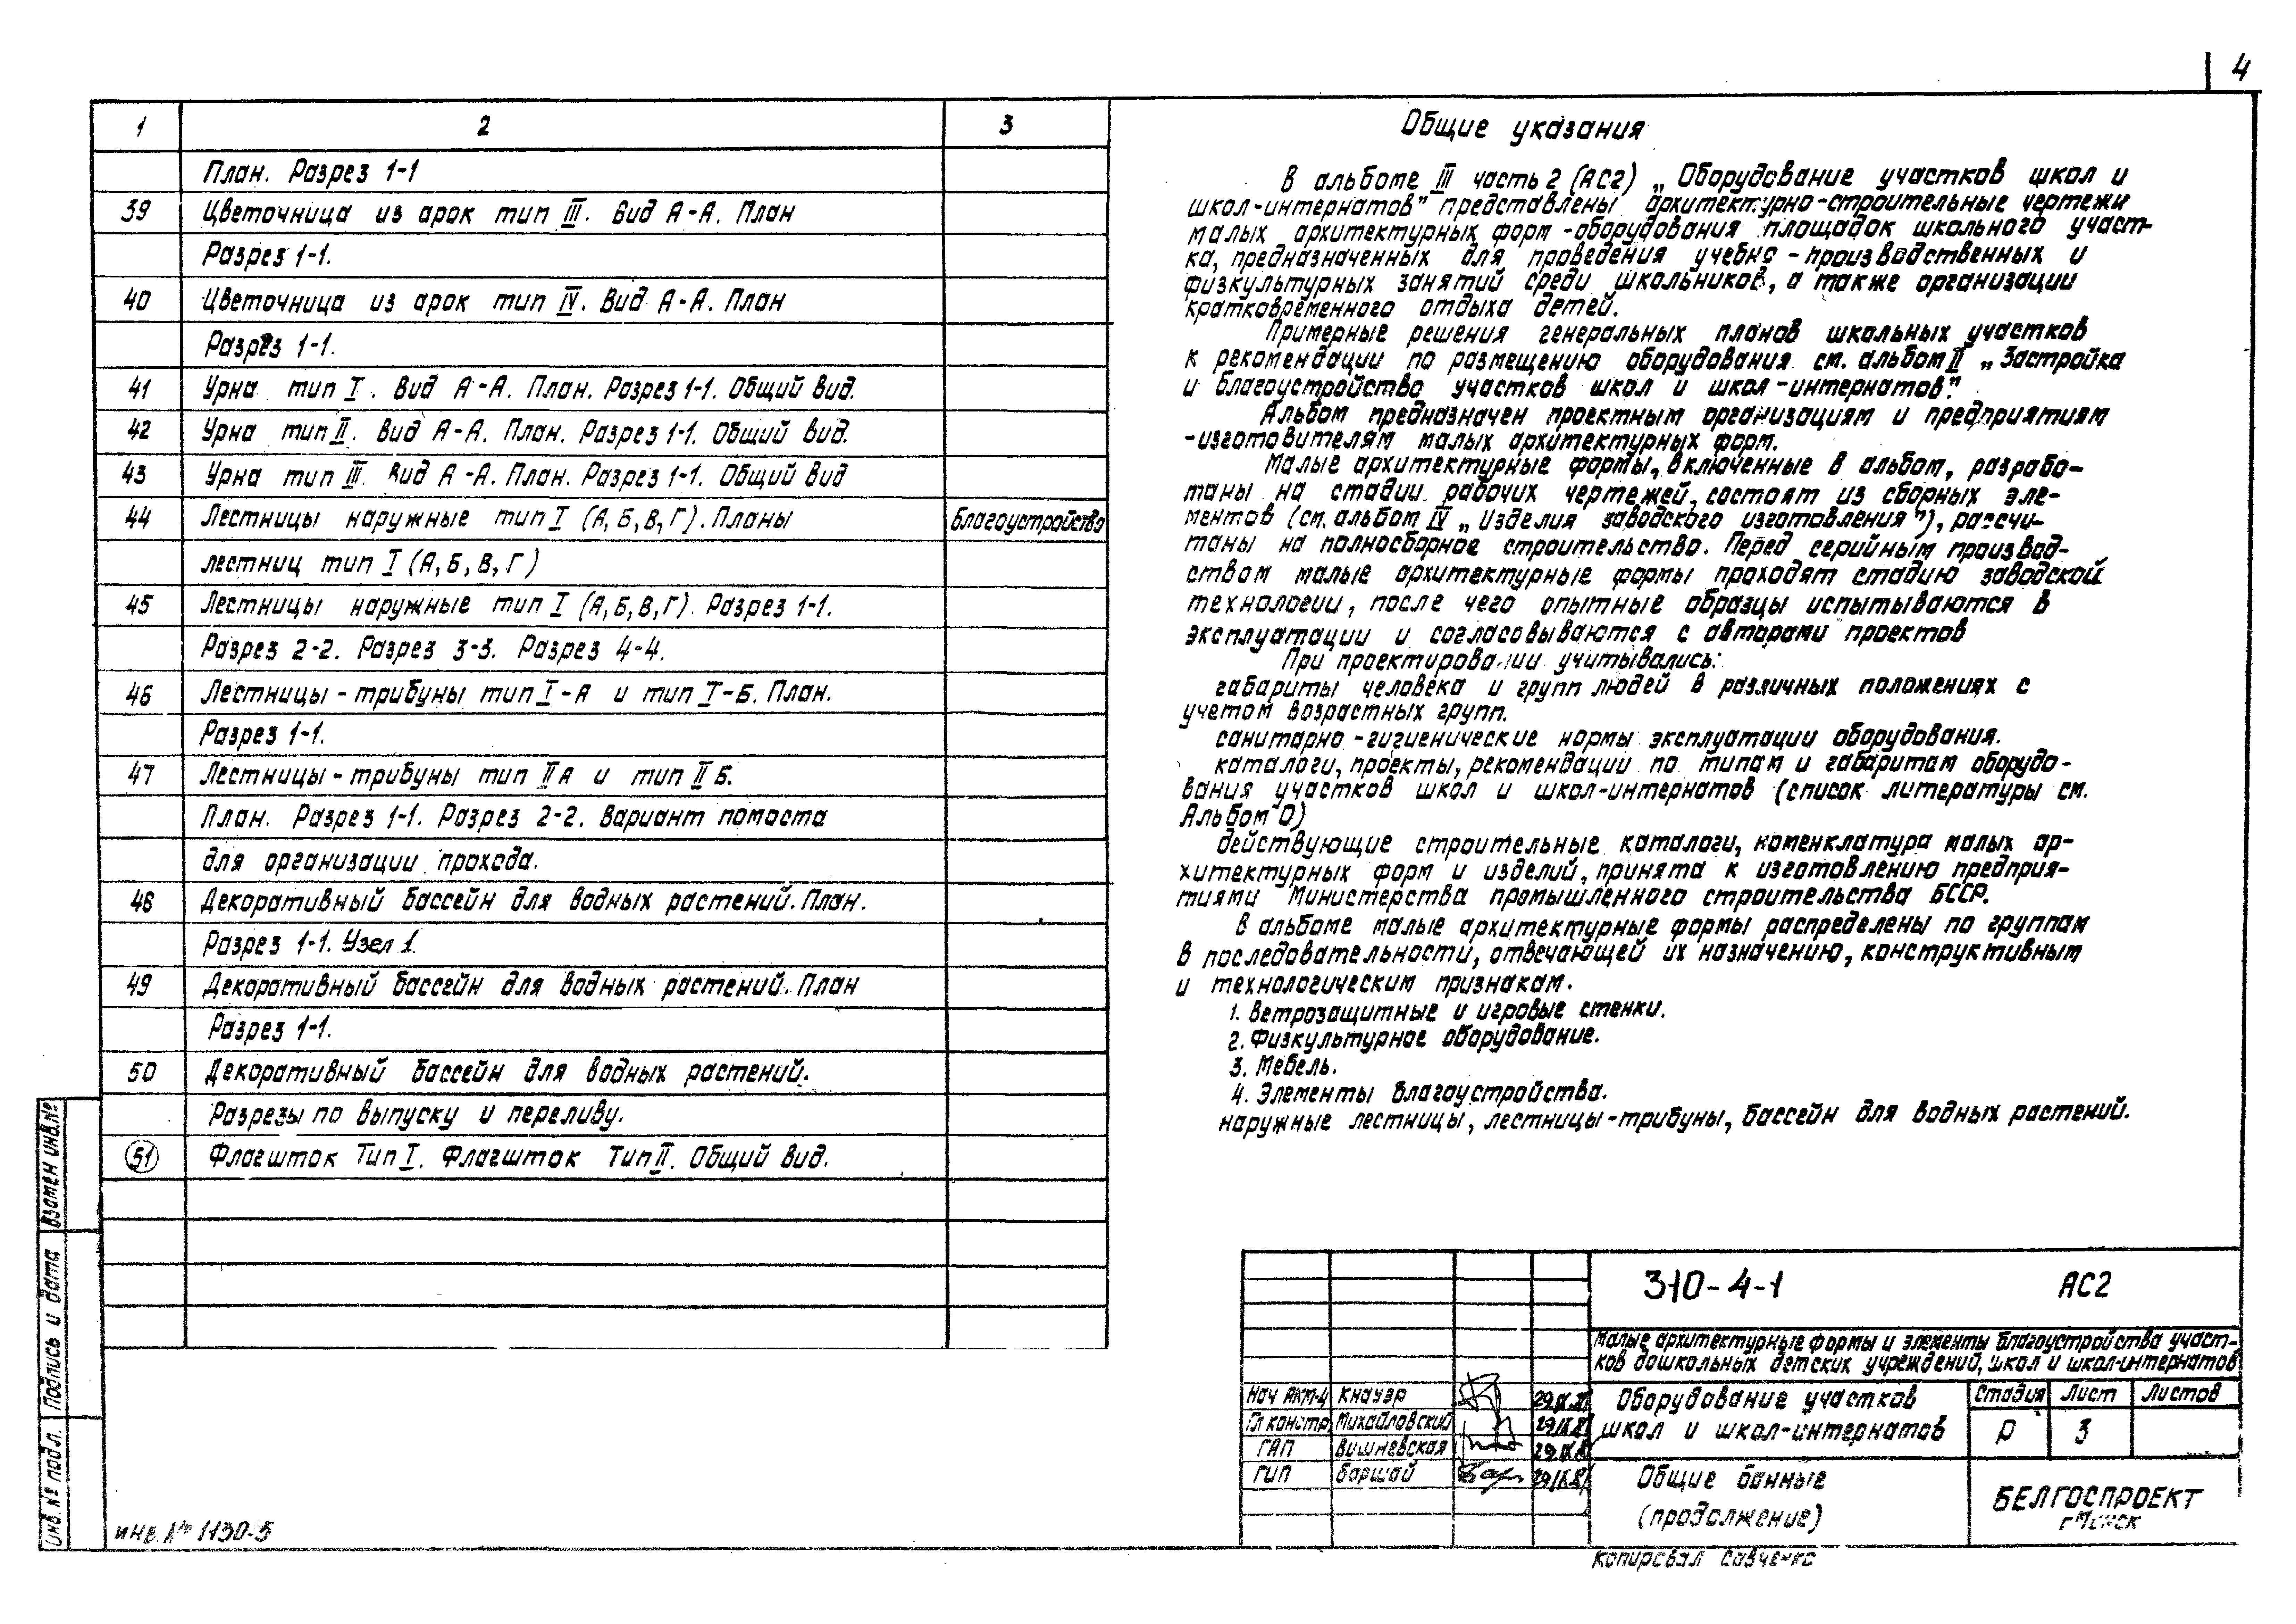 4
1 2 3
План. Разрез 1-1
39 Цветочница из арок тип III. Вид А-А. План
Разрез 1-1.
40 Цветочница из арок тип IV. Вид А-А. План
Разрез 1-1.
41 Урна тип I. Вид А-А. План. Разрез 1-1. Общий вид.
42 Урна тип II. Вид А-А. План. Разрез 1-1. Общий вид.
43 Урна тип III. Вид А-А. План. Разрез 1-1. Общий вид
44 Лестницы наружные тип I (А, Б, В, Г). Планы Благоустройство
лестниц тип I (А, Б, В, Г)
45 Лестницы наружные тип I (А, Б, В, Г). Разрез 1-1.
Разрез 2-2. Разрез 3-3. Разрез 4-4.
46 Лестницы-трибуны тип I-А и тип I-Б. План.
Разрез 1-1.
47 Лестницы-трибуны тип II А и тип II Б.
План. Разрез 1-1. Разрез 2-2. Вариант помоста
для организации прохода.
48 Декоративный бассейн для водных растений. План.
Разрез 1-1. Узел 1.
49 Декоративный бассейн для водных растений. План
Разрез 1-1.
50 Декоративный бассейн для водных растений.
Разрезы по выпуску и переливу.
51 Флагшток Тип I. Флагшток Тип II. Общий вид.
Общие указания
В альбоме III часть 2 (АС2) „Оборудование участков школ и
школ-интернатов" представлены архитектурно-строительные чертежи
малых архитектурных форм-оборудования площадок школьного участ-
ка, предназначенных для проведения учебно-производственных и
физкультурных занятий среди школьников, а также организации
кратковременного отдыха детей.
Примерные решения генеральных планов школьных участков
к рекомендации по размещению оборудования см. альбом II „Застройка
и благоустройство участков школ и школ-интернатов".
Альбом предназначен проектным организациям и предприятиям
-изготовителям малых архитектурных форм.
Малые архитектурные формы, включенные в альбом, разрабо-
таны на стадии рабочих чертежей, состоят из сборных эле-
ментов (см. альбом IV „Изделия заводского изготовления"), рассчи-
таны на полносборное строительство. Перед серийным производ-
ством малые архитектурные формы проходят стадию заводской
технологии, после чего опытные образцы испытываются в
эксплуатации и согласовываются с авторами проектов
При проектировании учитывались:
габариты человека и групп людей в различных положениях с
учетом возрастных групп.
санитарно-гигиенические нормы эксплуатации оборудования.
каталоги, проекты, рекомендации по типам и габаритам оборудо-
вания участков школ и школ-интернатов (список литературы см.
Альбом 0)
действующие строительные каталоги, номенклатура малых ар-
хитектурных форм и изделий, принята к изготовлению предприя-
тиями Министерства промышленного строительства БССР.
В альбоме малые архитектурные формы распределены по группам
в последовательности, отвечающей их назначению, конструктивным
и технологическим признакам.
1. Ветрозащитные и игровые стенки.
2. Физкультурное оборудование.
3. Мебель.
4. Элементы благоустройства.
наружные лестницы, лестницы-трибуны, бассейн для водных растений.
310-4-1 АС2
Малые архитектурные формы и элементы благоустройства участ-
ков дошкольных детских учреждений, школ и школ-интернатов
Нач АКМ-4 Кнауэр
Гл констр Михайловский
ГАП Вишневская
ГИП Баршай
Оборудование участков
школ и школ-интернатов
Стадия Лист Листов
Р 3
Общие данные
(продолжение)
БЕЛГОСПРОЕКТ
г Минск
Копировал Савченко
Взамен инв.№
Подпись и дата
Инв. № подл.
инв. № 1130-5